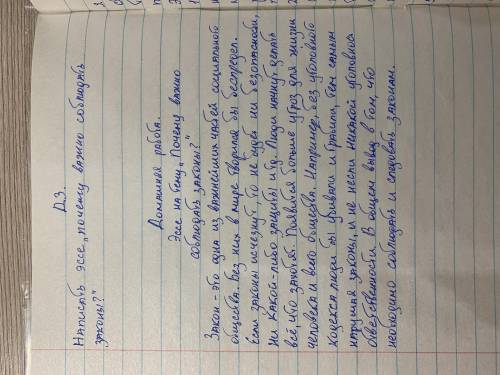 Д.З.
Написать эссе „почему важно соблюдать
законы?"
Домашняя работа.
Эссе на тему „Почему важно
соблюдать законы?"
Закон - это одна из важнейших частей социального
общества. Без него в мире творился бы беспредел.
Если законы исчезнут, то не будет ни безопасности,
ни какой-либо защиты и тд. Люди начнут делать
всё, что захотят. Появится больше угроз для жизни
человека и всего общества. Например, без уголовного
кодекса люди бы убивали и грабили, тем самым
нарушая законы, и не несли никакой уголовной
ответственности. В общем вывод в том, что
необходимо соблюдать и следовать законам.